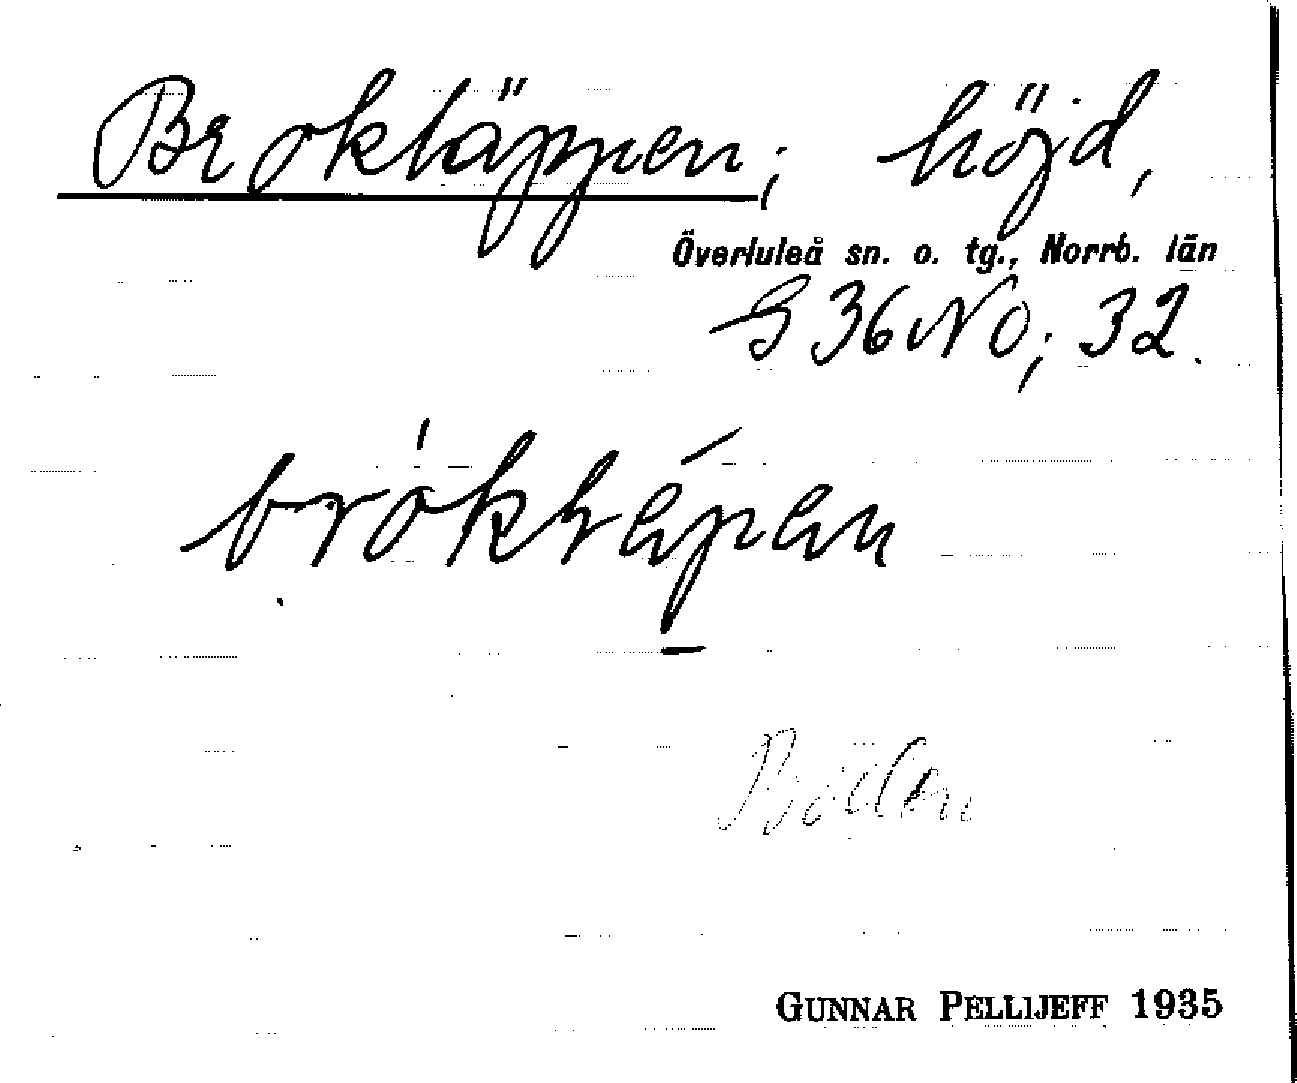 Broktäppen; höjd,
Överluleå sn. o. tg., Norrb. län
G 36 NO; 32.
bróktépen
Boden
GUNNAR PELLIJEFF 1935